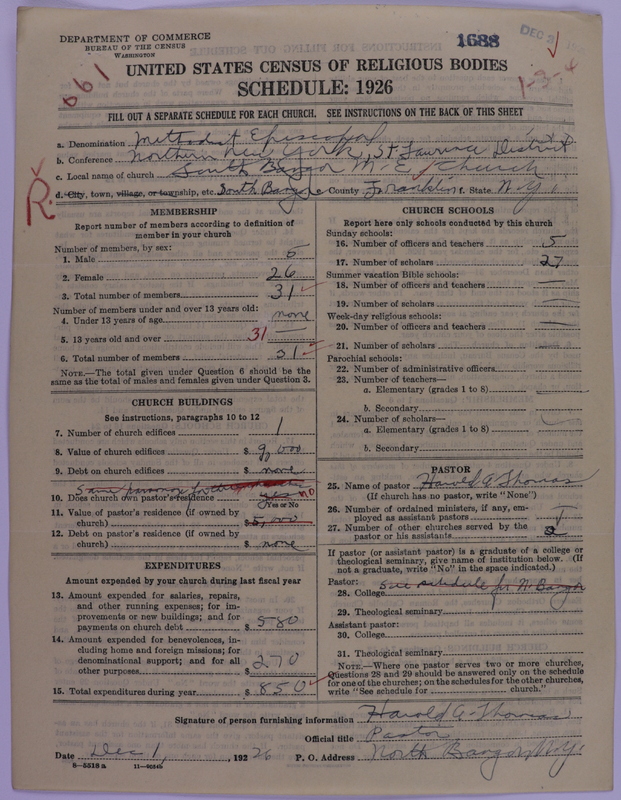 DEPARTMENT OF COMMERCE
BUREAU OF THE CENSUS
WASHINGTON
1688
DEC 3
661
1-3-4
UNITED STATES CENSUS OF RELIGIOUS BODIES
SCHEDULE: 1926
FILL OUT A SEPARATE SCHEDULE FOR EACH CHURCH. SEE INSTRUCTIONS ON THE BACK OF THIS SHEET
a. Denomination Methodist Episcopal
b. Conference Northern New York, St Lawrence District
c. Local name of church South Bangor M. E. Church
d. City, town, village, or township, etc. South Bangor e. County Franklin f. State N.Y.
R.
MEMBERSHIP
Report number of members according to definition of member in your church
Number of members, by sex:
1. Male 5
2. Female 26
3. Total number of members 31
Number of members under and over 13 years old:
4. Under 13 years of age none
5. 13 years old and over 31
6. Total number of members 31
NOTE.—The total given under Question 6 should be
same as the total of males and females given under Question 3.
CHURCH BUILDINGS
See instructions, paragraphs 10 to 12
7. Number of church edifices 1
8. Value of church edifices $ 9,000
9. Debt on church edifices $ none
Same parsonage for
10. Does church own pastor's residence yes no
Yes or No
11. Value of pastor's residence (if owned by
church) $ 5,000
12. Debt on pastor's residence (if owned by
church) $ none
EXPENDITURES
Amount expended by your church during last fiscal year
13. Amount expended for salaries, repairs,
and other running expenses; for im-
provements or new buildings; and for
payments on church debt $ 580
14. Amount expended for benevolences, in-
cluding home and foreign missions; for
denominational support; and for all
other purposes $ 270
15. Total expenditures during year $ 850
CHURCH SCHOOLS
Report here only schools conducted by this church
Sunday schools:
16. Number of officers and teachers 5
17. Number of scholars 27
Summer vacation Bible schools:
18. Number of officers and teachers —
19. Number of scholars —
Week-day religious schools:
20. Number of officers and teachers —
21. Number of scholars —
Parochial schools:
22. Number of administrative officers
23. Number of teachers—
a. Elementary (grades 1 to 8)
b. Secondary
24. Number of scholars—
a. Elementary (grades 1 to 8)
b. Secondary
PASTOR
25. Name of pastor Harold G. Thomas
(If church has no pastor, write "None")
26. Number of ordained ministers, if any, em-
ployed as assistant pastors
27. Number of other churches served by the
pastor or his assistants
If pastor (or assistant pastor) is a graduate of a college or
theological seminary, give name of institution below. (If
not a graduate, write "No" in the space indicated.)
Pastor: See schedule for N. Bangor
28. College
29. Theological seminary
Assistant pastor:
30. College
31. Theological seminary
NOTE.—Where one pastor serves two or more churches,
Questions 28 and 29 should be answered only on the schedule
for one of the churches; on the schedules for the other churches,
write "See schedule for church."
Signature of person furnishing information Harold G. Thomas
Official title Pastor
Date Dec 1, , 1926 P. O. Address North Bangor, N.Y.
8—5518 a